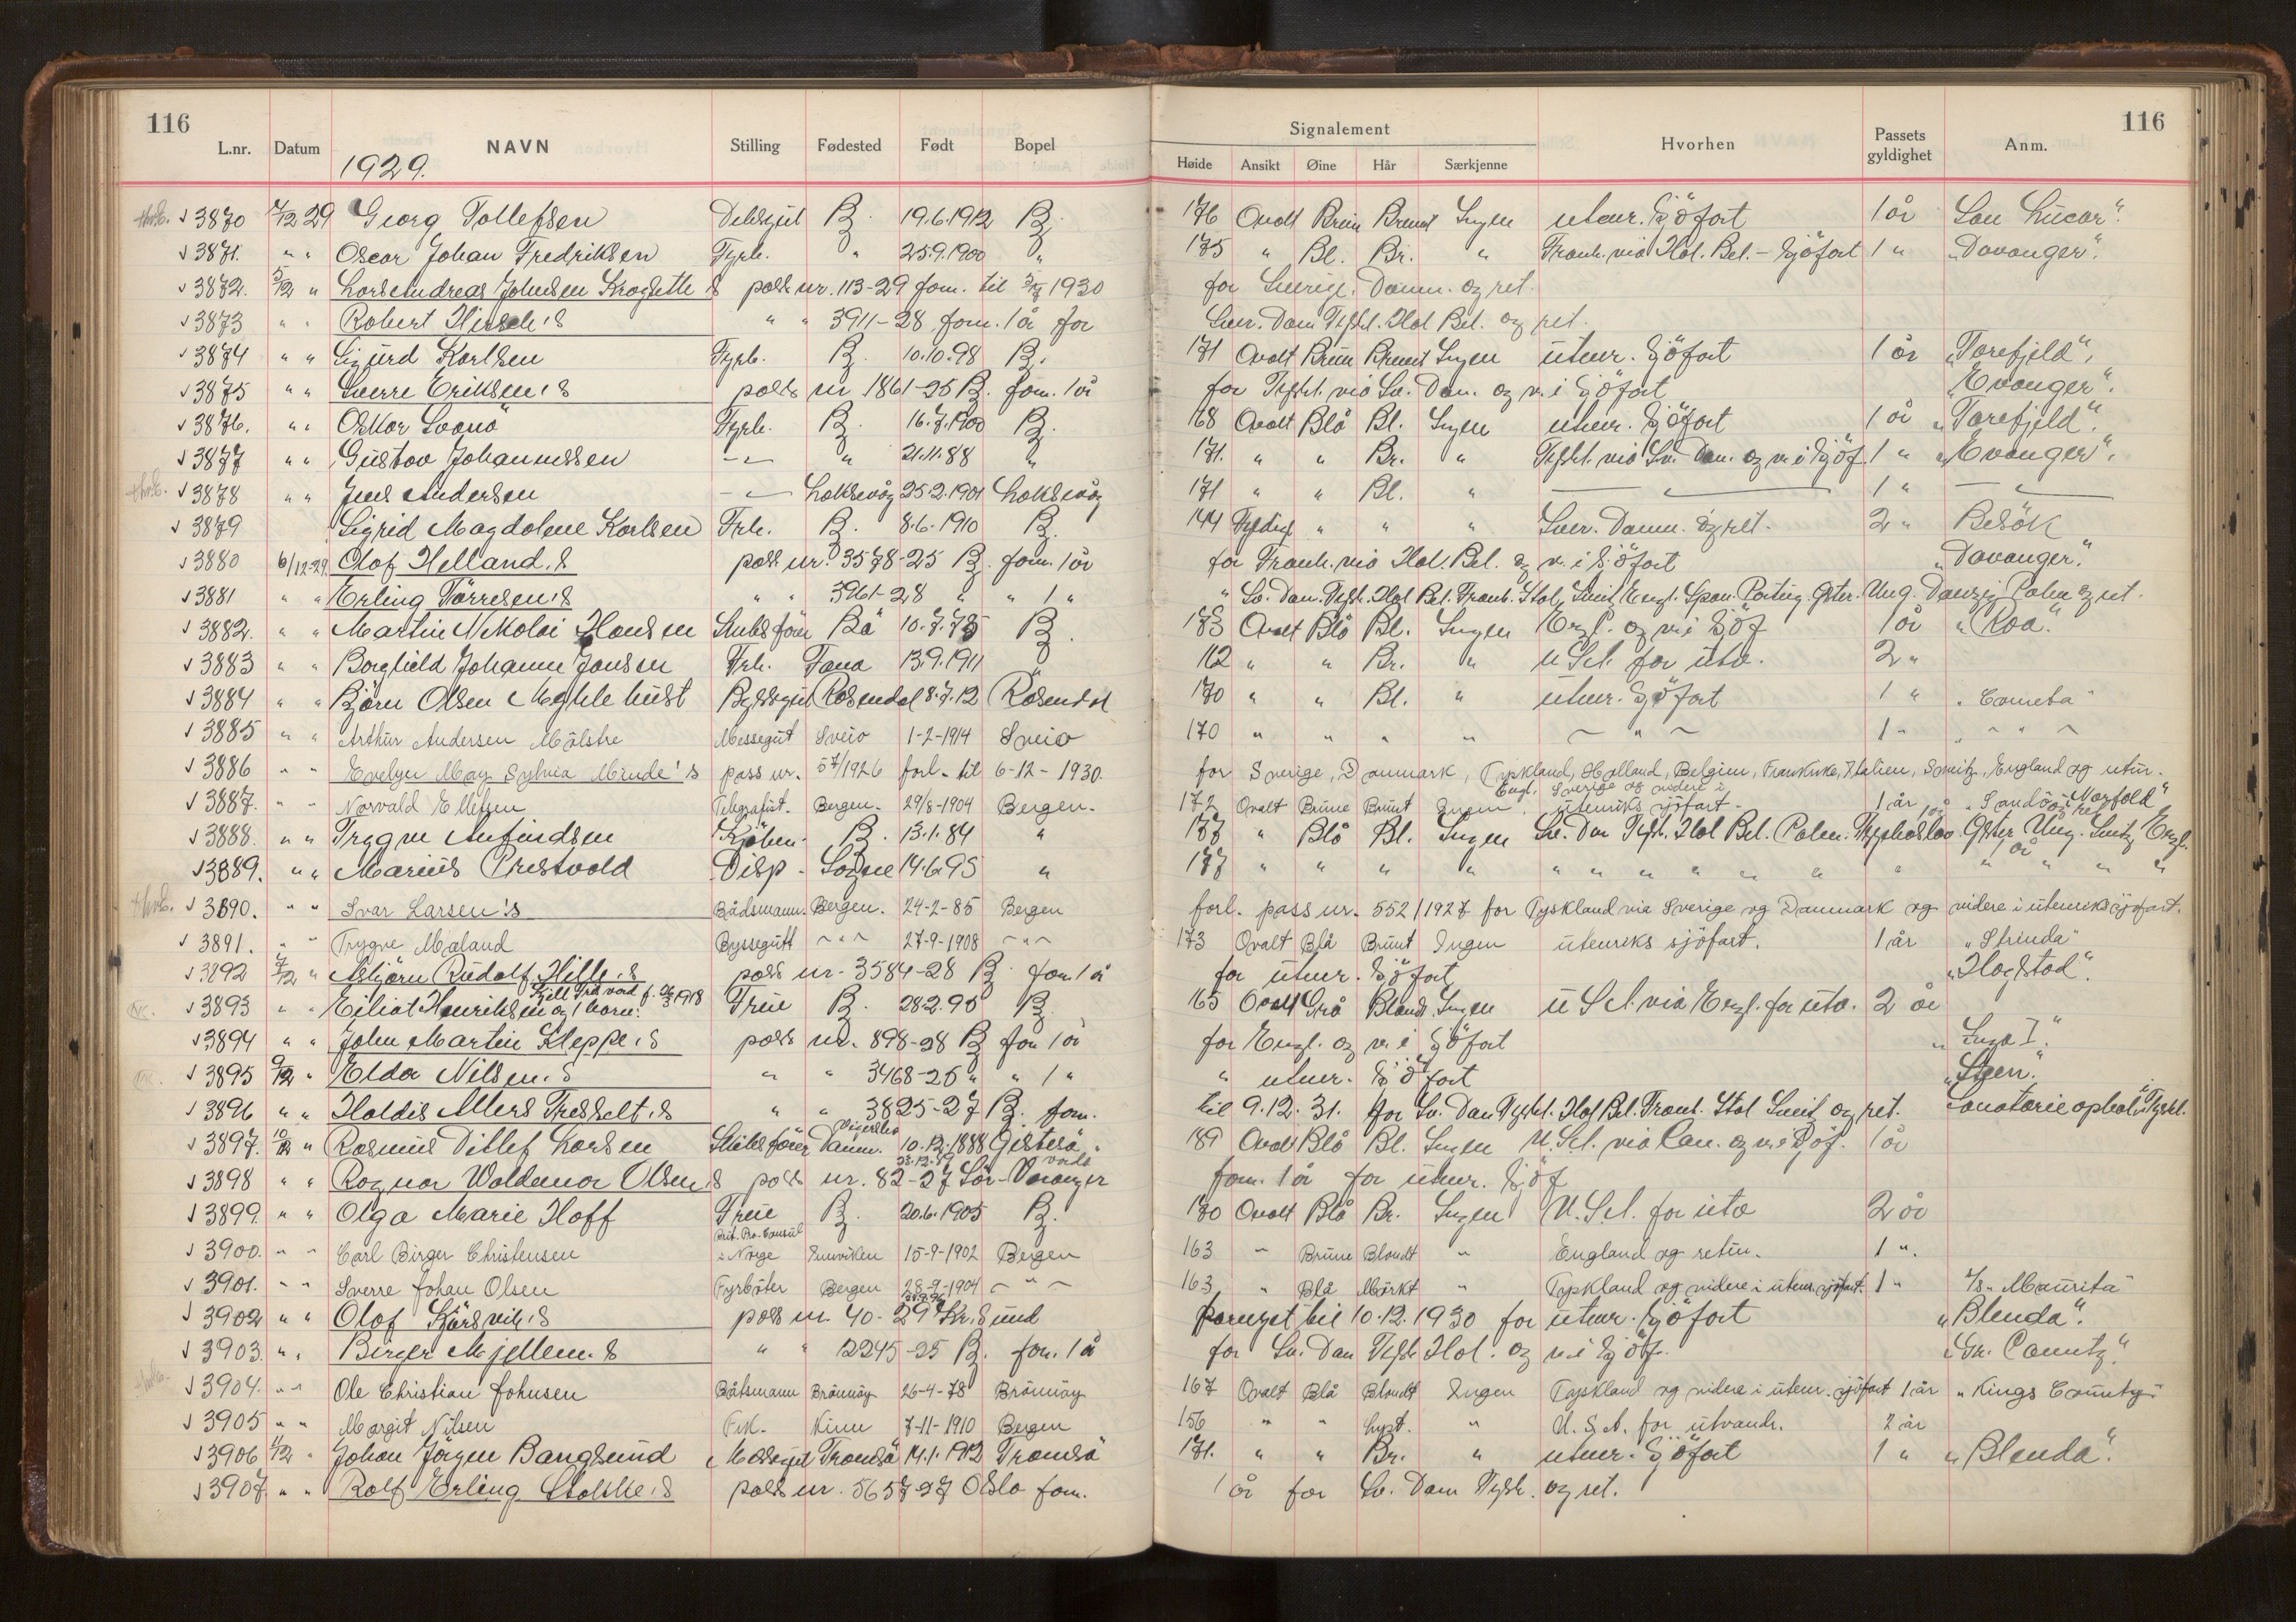 116 116
Signalement
L.nr. Datum NAVN Stilling Fødested Født Bopel Høide Ansikt Øine Hår Særkjenne Hvorhen Passets gyldighet Anm.
1929.
3870 29 Georg Tollefsen B. 19.6.1912 B. 176 Ovalt Brun Brunt Ingen utenr. Sjöfart 1 år San Lucar".
3871. " " Oscar Johan Fredriksen Fyrb. " 25.9.1900 " 175 " Bl. Br. " Frank. via Hol. Bel. - Sjöfart 1 " "Davanger".
3872. 5/12 " Lars Andreas Johnsen s pass nr. 113-29 forn. til 1930 for Sverige. Danm. og ret.
3873 " " Robert Hirsch's " " 3911-28 forn. 1 år for Sver. Dan Tyskl. Hol Bel. og ret.
3874 " " Sigurd Karlsen Fyrb. B. 10.10.98 B. 171 Ovalt Brun Brunt Ingen utenr. Sjöfart 1 år "Torefjeld".
3875 " " Sverre Eriksen's pass nr 1861-25 B. forn. 1 år for Tyskl. via Sv. Dan. og v. i Sjöfart "Evanger".
3876. " " Oskar Svanö Fyrb. B. 16.7.1900 B. 168 Ovalt Blå Bl. Ingen utenr. Sjöfart 1 år "Torefjeld".
3877 " " Gustav Johannessen - " - " 21.11.88 " 171. " " Br. " Tyskl. via Sv. Dan. og v. i Sjöf. 1 " "Evanger".
3878 " " Jens Andersen - " - Laksevåg 25.2.1901 Laksevåg 171 " " Bl. " " 1 " "
3879 Sigrid Magdalene Karlsen Frk. B. 8.6.1910 B. 144 " " " Sver. Danm. og ret. 2 " Besök
3880 6/12-29 Olaf Helland's pass nr. 3578-25 B. forn. 1 år for Frank. via Hol. Bel. og v. i Sjöfart "Davanger".
3881 " " Erling Törresen's " " 3961-28 " " 1 " " Sv. Dan. Tysk. Hol Bel. Frank. Ital. Sveitz Engl. Span. Portug. Öster. Ung. Danzig Polen og ret.
3882. " " Martin Nikolai Hansen B 10.7.75 B. 183 Ovalt Blå Bl. Ingen Engl. og v. i Sjöf 1 år "Roa".
3883 " " Borghild Johanne Jansen Frk. Fana 13.9.1911 " 162 " " Br. " U St. for utv. 2 "
3884 " " Björn Olsen Myklebust Byssegut Rosendal 8.7.12 Rosendal 170 " " Bl. " utenr. Sjöfart 1 " "Cometa"
3885 " " Arthur Andersen Mölstre Messegut Sveio 1-2-1914 Sveio 170 " " " " " 1 " "
3886 " " Evelyn May Sylvia Minde's pass nr. 57/1926 forl. til 6-12-1930. for Sverige, Danmark, Tyskland, Holland, Belgien, Frankrike, Italien, Sveitz, England og retur.
Engl. Sverige og videre i
3887. " " Norvald Ellefsen Telegrafist. Bergen. 29/8-1904 Bergen. 172 Ovalt Brune Brunt Ingen utenriks sjöfart. 1 år
3888. " " Trygve Anfindsen Kjöbm. B. 13.1.84 " 177 " Blå Bl. Ingen Sv. Dan Tysk. Hol Bel. Polen. Öster Ung. Sveitz Engl.
3889. " " Marius Prestvold Disp. Sogne 14.6.95 " 177 " " " " " " " " "
3890. " " Ivar Larsen's Bådsmann. Bergen. 24-2-85 Bergen forl. pass nr. 552/1927 for Tyskland via Sverige og Danmark og videre i utenriks sjöfart.
3891. " " Trygve Maland Byssegutt " 27-9-1908 " 173 Ovalt Blå Brunt Ingen utenriks sjöfart. 1 år "Strinda"
3892 7/12 " Asbjörn Rudolf Hille's pass nr. 3584-28 B. forn. 1 år for utenr. Sjöfart "Hogstad".
3893 " " Eiliot Henriksen og 1 barn. Frue B. 28.2.95 B. 165 Ovalt Grå Blondt Ingen U St. via Engl. for utv. 2 år
3894 " " John Martin Kleppe's pass nr. 898-28 B for 1 år for Engl. og v. i Sjöfart "Inga I."
3895 9/12 " Elda Nilsen's " " 3468-25 " " 1 " " utenr. Sjöfart "Steen".
3896 " " Haldis Allers Tresselt's " " 3825-27 B. forn. til 9.12.31. for Sv. Dan Tyskl. Hol Bel. Frank. Ital Sveitz og ret. Sanatorieophol i Tyskl.
3897. 10/12 " Rasmus Ditlef Larsen Danm. 10.12.1888 189 Ovalt Blå Bl. Ingen U. St. via Can. og v. i Sjöf. 1 år
3898 " " Ragnar Waldemar Olsen's pass nr. 82-27 Sör-Varanger forn. 1 år for utenr. Sjöf
3899. " " Olga Marie Hoff Frue B. 20.6.1905 B. 180 Ovalt Blå Br. Ingen U. St. for utv 2 år
3900. " " Carl Birger Christensen Brit. Pro-Consul i Norge Innviken 15-9-1902 Bergen 163 " Brune Blondt " England og retur. 1 ".
3901. " " Sverre Johan Olsen Fyrböter Bergen 28-9-1904 " 163 " Blå Mörkt " Tyskland og videre i utenr. sjöfart. 1 " S/S "Maurita"
3902 " " Olaf Kjörsvik's pass nr. 40-29 Kr. Sund fornyet til 10.12.1930 for utenr. Sjöfart "Blenda".
3903. " " Birger Mjellem's " " 2245-25 B. forn. 1 år for Sv. Dan Tysk Hol. og v. i Sjöf.
3904. " " Ole Christian Johnsen Båtsmann Brönnöy 26-4-78 Brönnöy 167 Ovalt Blå Blondt Ingen Tyskland og videre i utenr. sjöfart 1 år "Kings County"
3905 " " Margit Nilsen Frk. Kinn 7-11-1910 Bergen 156 " " Lyst. " U. S. A. for utvandr. 2 år
3906 11/12 " Johan Jörgen Bangsund Messegut Tromsö 14.1.1912 Tromsö 171. " " Br. " utenr. Sjöfart 1 " "Blenda".
3907 " " Rolf Erling Stolske's pass nr. 5657-27 Oslo forn. 1 år for Sv. Dan Tysk. og ret.